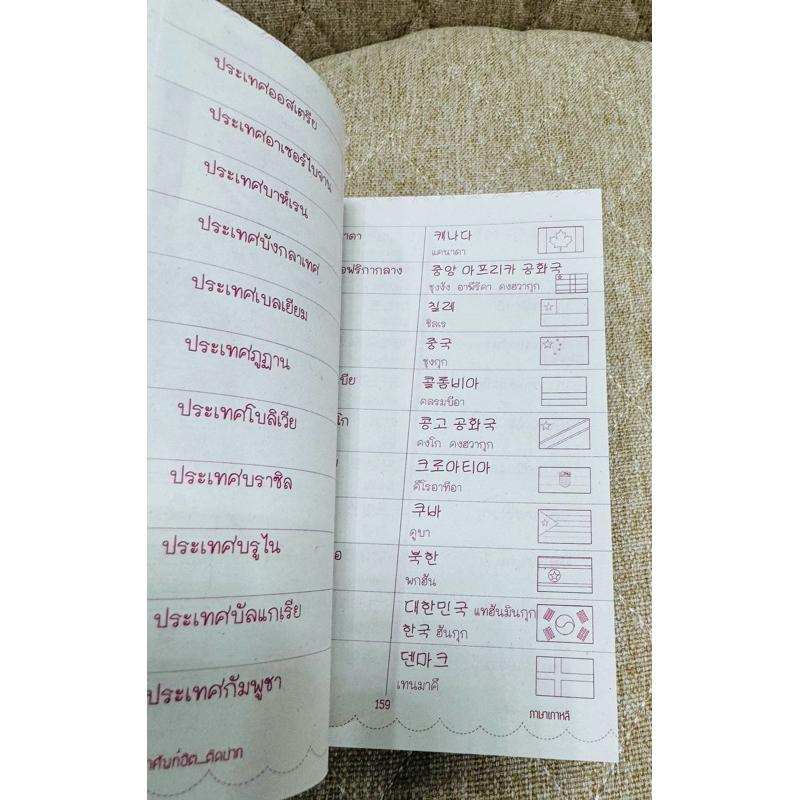 ประเทศออสเตรีย
ประเทศอาเซอร์ไบจาน
ประเทศบาห์เรน
ประเทศบังกลาเทศ
ประเทศเบลเยียม
ประเทศภูฏาน
ประเทศโบลิเวีย
ประเทศบราซิล
ประเทศบรูไน
ประเทศบัลแกเรีย
ประเทศกัมพูชา
캐나다
แคนาดา
อฟริกากลาง
중앙 아프리카 공화국
ชุงอัง อาพือรีคา คงฮวากุก
칠레
ชิลเร
중국
ชุงกุก
콜롬비아
คลรมบีอา
콩고 공화국
คงโก คงฮวากุก
크로아티아
คือโรอาทีอา
쿠바
คูบา
북한
พกฮัน
대한민국 แทฮันมินกุก
한국 ฮันกุก
덴마크
เทนมาคือ
159
ภาษาเกาหลี